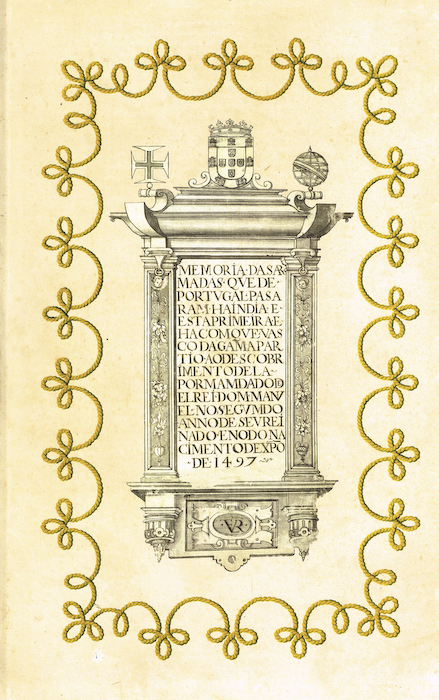 MEMORIA·DAS·AR
MADAS·QVE·DE·
PORTVGAL·PASA
RAM·HA·INDIA·E·
ESTA·PRIMEIRA·E·
HA·COM·QVE·VAS
CO·DA·GAMA·PAR
TIO·AO·DESCOBR
IMENTO·DE·LA·
POR·MAMDADO·D
EL·REI·DOM·MANV
EL·NO·SEGVMDO
ANNO·DE·SEV·REI
NADO·E·NO·DO·NA
CIMENTO·DE·XPO
·DE·1497·